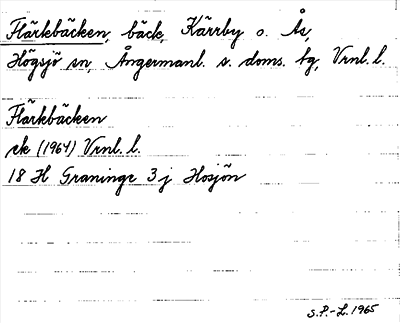 Flärkebäcken, bäck, Kärrby o. Ås,
Högsjö sn, Ångermanl. s. doms. tg, Vrnl. l.
Flärkebäcken
ek (1964) Vrnl. l.
18 H Graninge 3 j Hosjön
S.P.-L. 1965